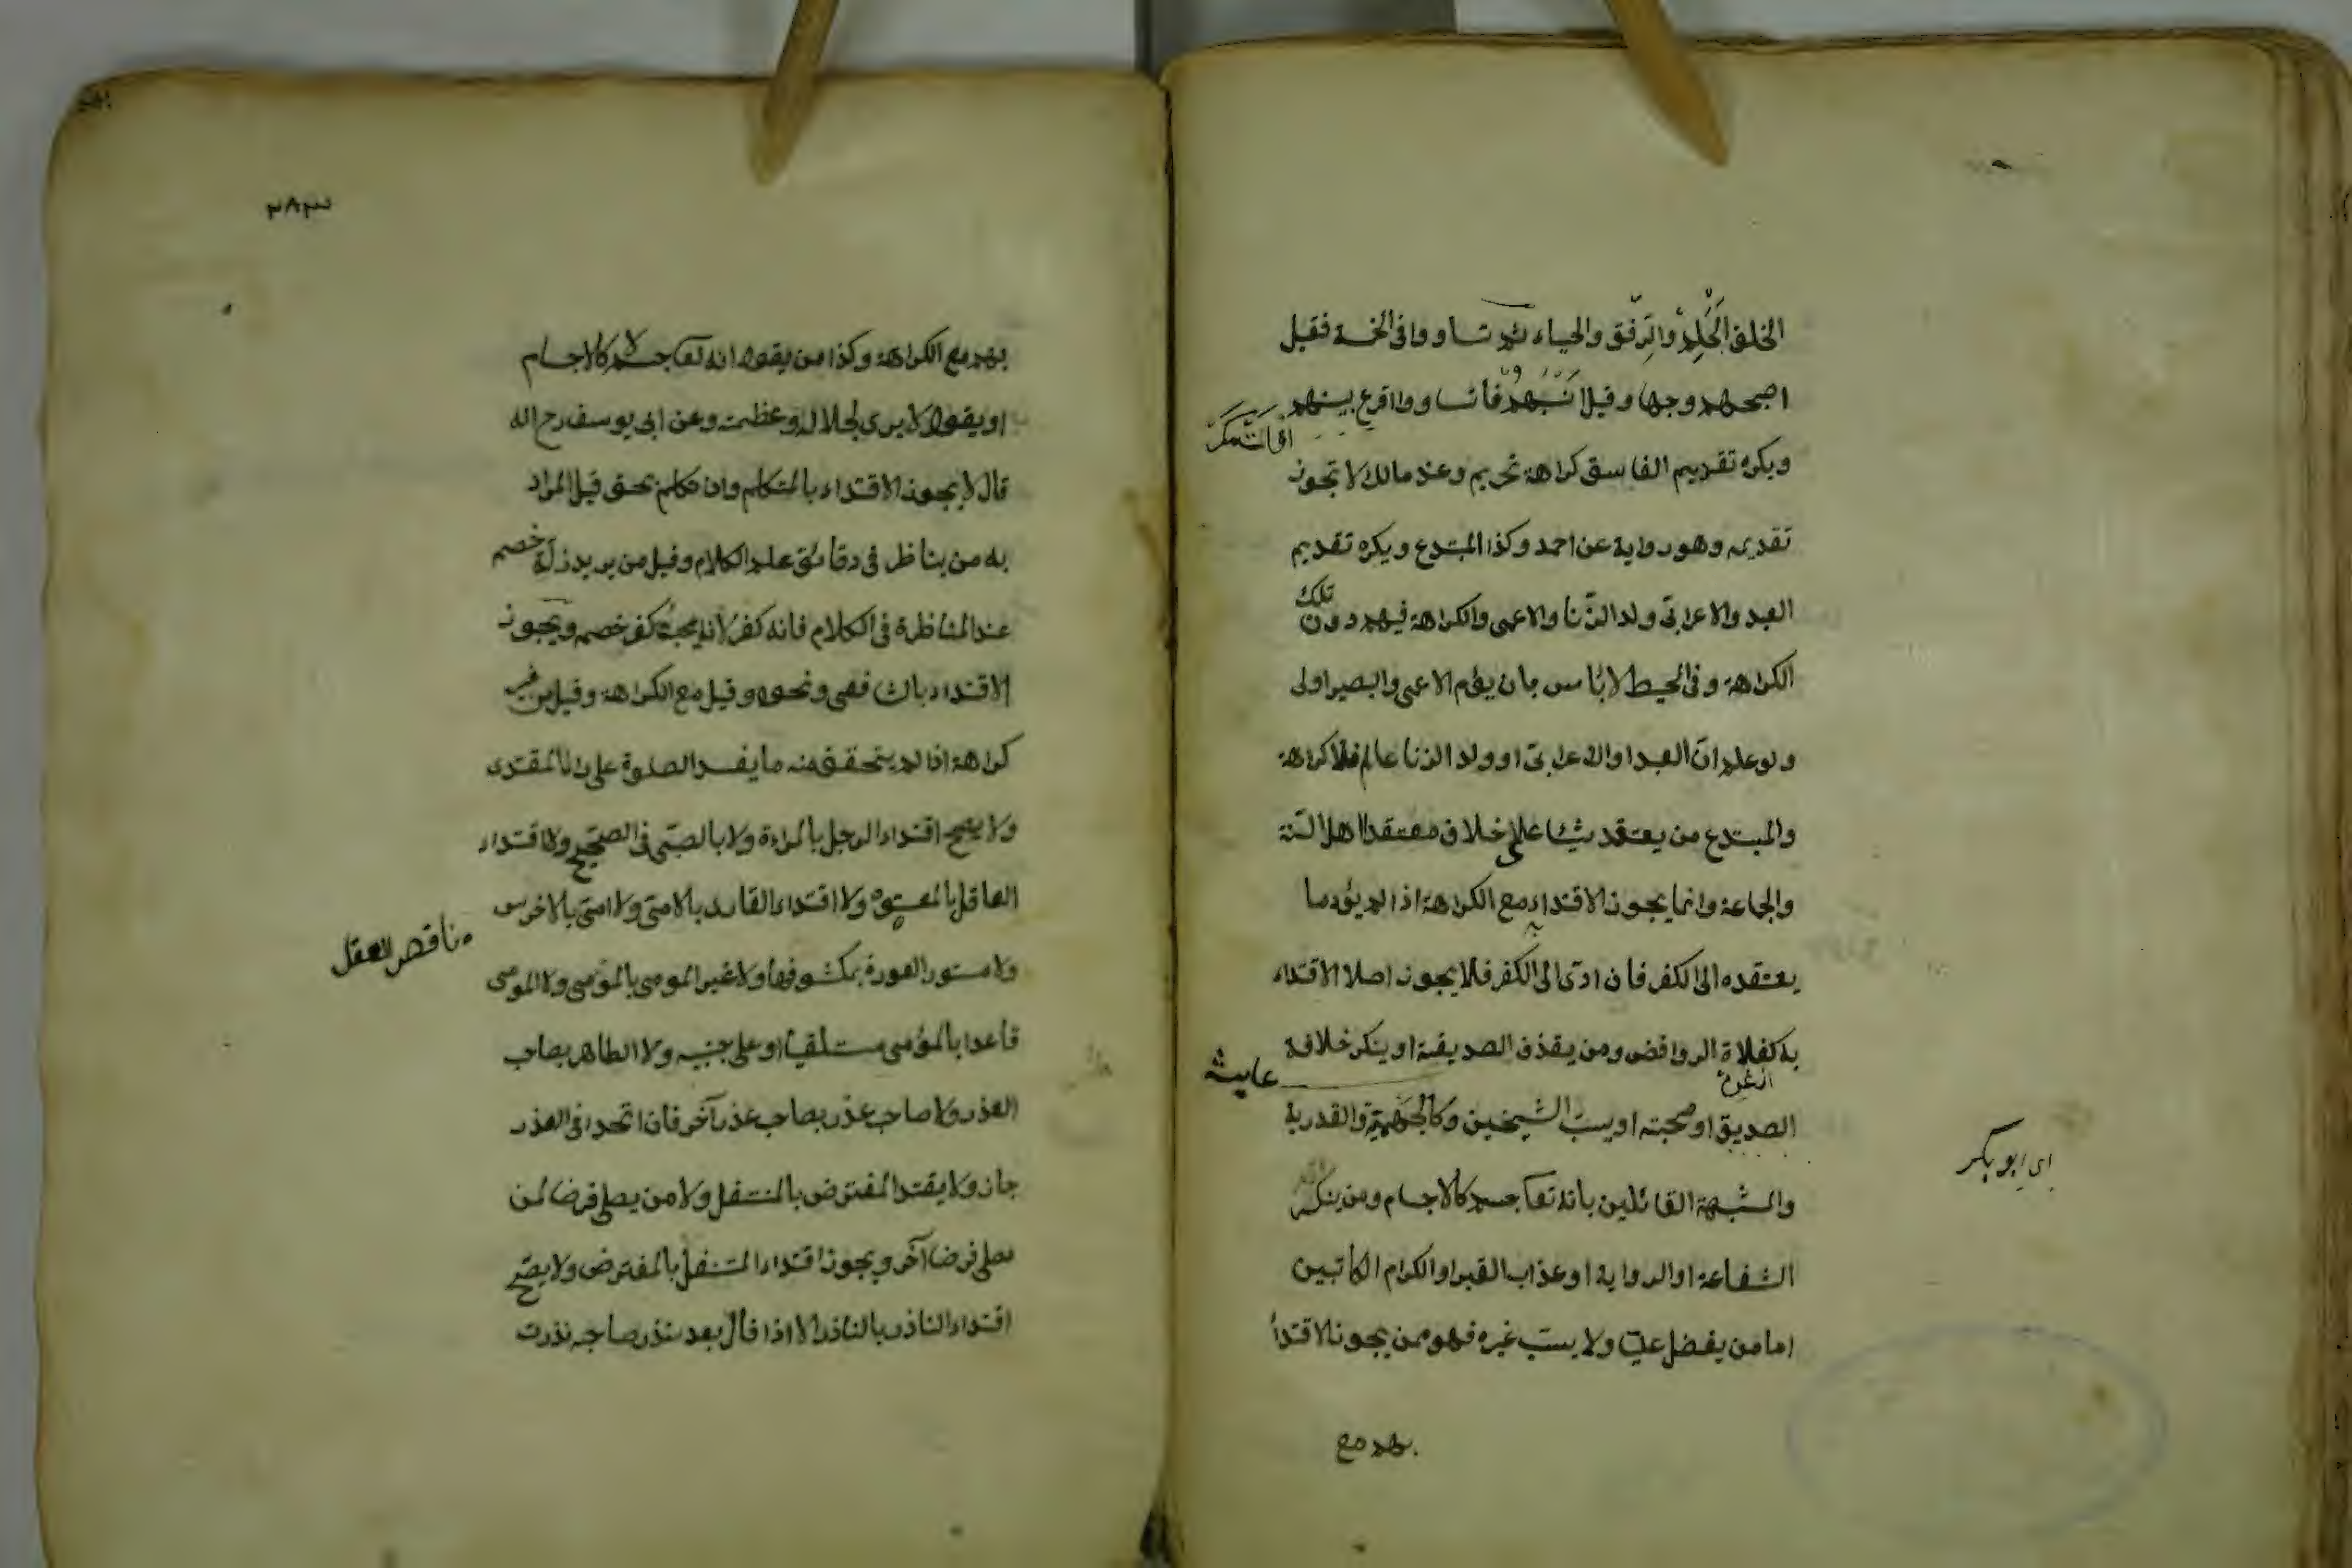 الخلق الحلم والرفق والحياء ثم تساووا فى الخمسة فقيل
اصبحهم وجها وقيل انسبهم فان تساووا اقرع بينهم
ويكره تقديم الفاسق كراهة تحريم وعند مالك لا تجوز
تقديمه وهو رواية عن احمد وكذا المبتدع ويكره تقديم
العبد والاعرابى وولد الزنا والاعمى والكراهة فيهم دون تلك
الكراهة وفى المحيط لا بأس بان يؤم الاعمى والبصير اولى
ولو علم ان العبد او الاعرابى او ولد الزنا عالم فلا كراهة
والمبتدع من يعتقد شيئا على خلاف معتقد اهل السنة
والجماعة وانما يجوز الاقتداء به مع الكراهة اذا لم يؤد ما
يعتقده الى الكفر فان ادى الى الكفر فلا يجوز اصلا الاقتداء
به كغلاة الروافض ومن يقذف الصديقة او ينكر خلافة
عايشة
الصديق او صحبته او يسب الشيخين وكالجهمية والقدرية
اى ابو بكر
والمشبهة القائلين بانه تعا جسم كالاجسام ومن ينكر
الشفاعة او الرواية او عذاب القبر او الكرام الكاتبين
اما من يفضل على ولا يسب غيره فهو ممن يجوز الاقتدأ
بهم مع
٢٨٣
بهم مع الكراهة وكذا من يقول انه تعا جسم لا كالاجسام
او يقول لا يرى لجلاله وعظمته وعن ابى يوسف رح الله
قال لا يجوز الاقتداء بالمتكلم وان تكلم بحق قيل المراد
به من يناظر فى دقائق علم الكلام وقيل من يريد زلة خصم
عند المناظرة فى الكلام فانه كفر لانه يحب كفر خصمه ويجوز
الاقتداء بالشافعى ونحوه وقيل مع الكراهة وقيل من غير
كراهة اذا لم يتحقق منه ما يفسد الصلوة على راى المقتدى
ولا يصح اقتداء الرجل بالمراءة ولا بالصبى فى الصحيح ولا اقتداء
العاقل بالمعتوه ولا اقتداء القارىء بالامى ولا امى بالاخرس
ناقص العقل
ولا مستور العورة بمكشوفها ولا غير المومى بالمؤمى ولا المومى
قاعدا بالمؤمى مستلقيا او على جنبيه ولا الطاهر بصاحب
العذر ولا صاحب عذر بصاحب عذر آخر فان اتحدا فى العذر
جاز ولا يقتد المفترض بالمتنفل ولا من يصلى فرضا لمن
يصلى فرضا آخر ويجوز اقتداء المتنفل بالمفترض ولا يصح
اقتداء الناذر بالناذر الا اذا قال بعد نذر صاحبه نذرت